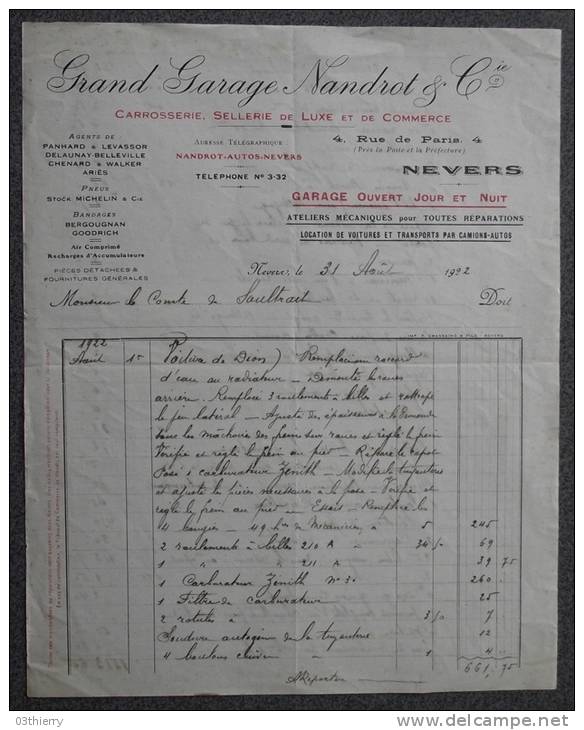 Grand Garage Nandrot & Cie
CARROSSERIE, SELLERIE DE LUXE ET DE COMMERCE
AGENTS DE
PANHARD & LEVASSOR
DELAUNAY-BELLEVILLE
CHENARD & WALKER
ARIÈS
PNEUS
STOCK MICHELIN & Cie
BANDAGES
BERGOUGNAN
GOODRICH
Air Comprimé
Recharges d'Accumulateurs
PIÈCES DÉTACHÉES &
FOURNITURES GÉNÉRALES
ADRESSE TÉLÉGRAPHIQUE
NANDROT-AUTOS-NEVERS
TÉLÉPHONE No 3-32
4, Rue de Paris, 4
(Près la Poste et la Préfecture)
NEVERS
GARAGE OUVERT JOUR ET NUIT
ATELIERS MÉCANIQUES pour TOUTES RÉPARATIONS
LOCATION DE VOITURES ET TRANSPORTS PAR CAMIONS-AUTOS
Nevers, le 31 Août 1922
Monsieur le Comte de Saultrait Doit
1922
1er Voiture de Dion) Remplacé un raccord
d'eau au radiateur - Démonté les roues
arrière. Remplacé 3 roulements à billes et rattrapé
le jeu latéral - Ajusté des épaisseurs
sous les mâchoires des freins sur roues et réglé le frein
Vérifié et réglé le frein au pied - le capot
Posé 1 carburateur Zénith - Modifié la tuyauterie
et ajusté les pièces nécessaires à la pose - Vérifié et
réglé le frein au pied - Essais - Remplacé les
4 - 49 hres de Mécanicien à 5 245
2 roulements à billes 210 A 34/50 69
1 " " 211 A 39 75
1 Carburateur Zénith No 30 260
1 Filtre de carburateur 25
2 rotules à 3/50 7
Soudure autogène de la tuyauterie 12
4 boulons 1 4
661,75
A Reporter
03thierry
www.delcampe.net